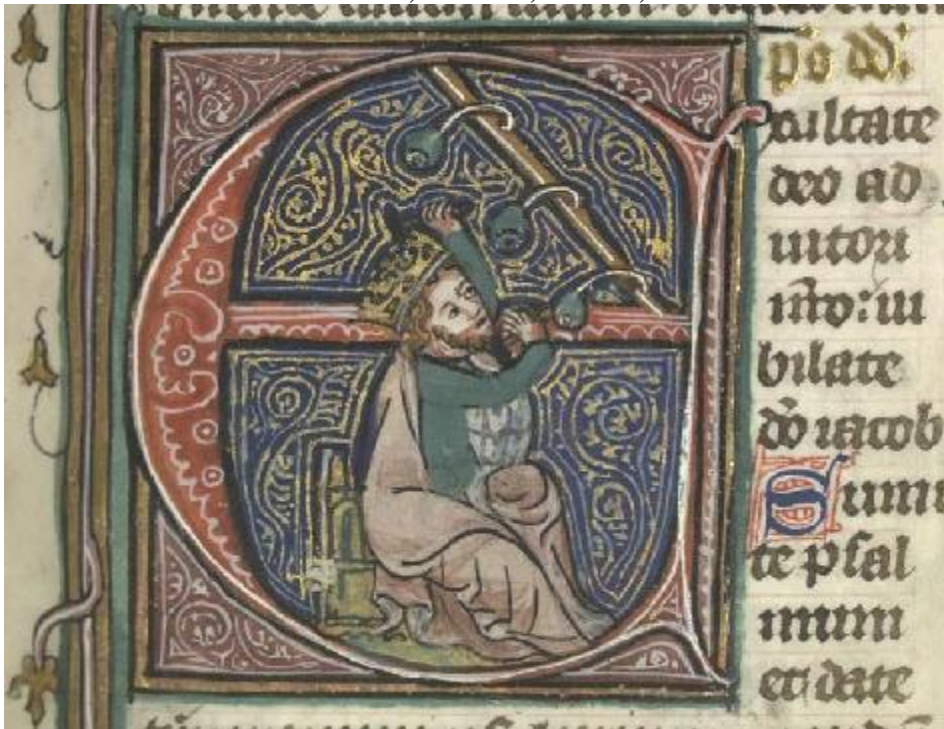 Exultate
deo ad
iutori
nr̄o: iu
bilate
dō iacob
Sumi
te psal
mum
et date